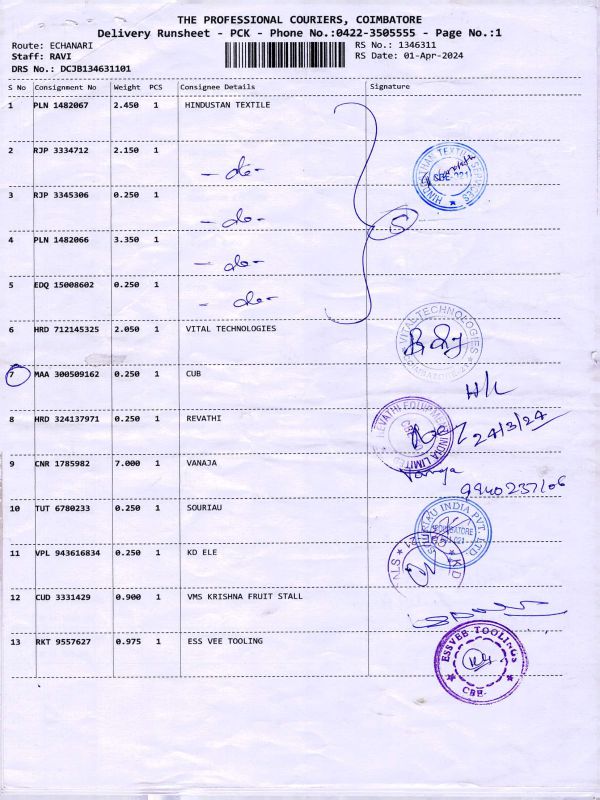 THE PROFESSIONAL COURIERS, COIMBATORE
Delivery Runsheet - PCK - Phone No.:0422-3505555 - Page No.:1
Route: ECHANARI RS No.: 1346311
Staff: RAVI RS Date: 01-Apr-2024
DRS No.: DCJB134631101
S No Consignment No Weight PCS Consignee Details Signature
1 PLN 1482067 2.450 1 HINDUSTAN TEXTILE
2 RJP 3334712 2.150 1 - do -
3 RJP 3345306 0.250 1 - do -
4 PLN 1482066 3.350 1 - do -
5 EDQ 15008602 0.250 1 - do -
5
6 HRD 712145325 2.050 1 VITAL TECHNOLOGIES
VITAL TECHNOLOGIES
7 MAA 300509162 0.250 1 CUB
8 HRD 324137971 0.250 1 REVATHI
REVATHI EQUIPMENT INDIA LIMITED
24/3/24
9 CNR 1785982 7.000 1 VANAJA
Vanaja
10 TUT 6780233 0.250 1 SOURIAU
INDIA PVT. LTD.
COIMBATORE
11 VPL 943616834 0.250 1 KD ELE
12 CUD 3331429 0.900 1 VMS KRISHNA FRUIT STALL
13 RKT 9557627 0.975 1 ESS VEE TOOLING
ESSVEE TOOLINGS
CBE-